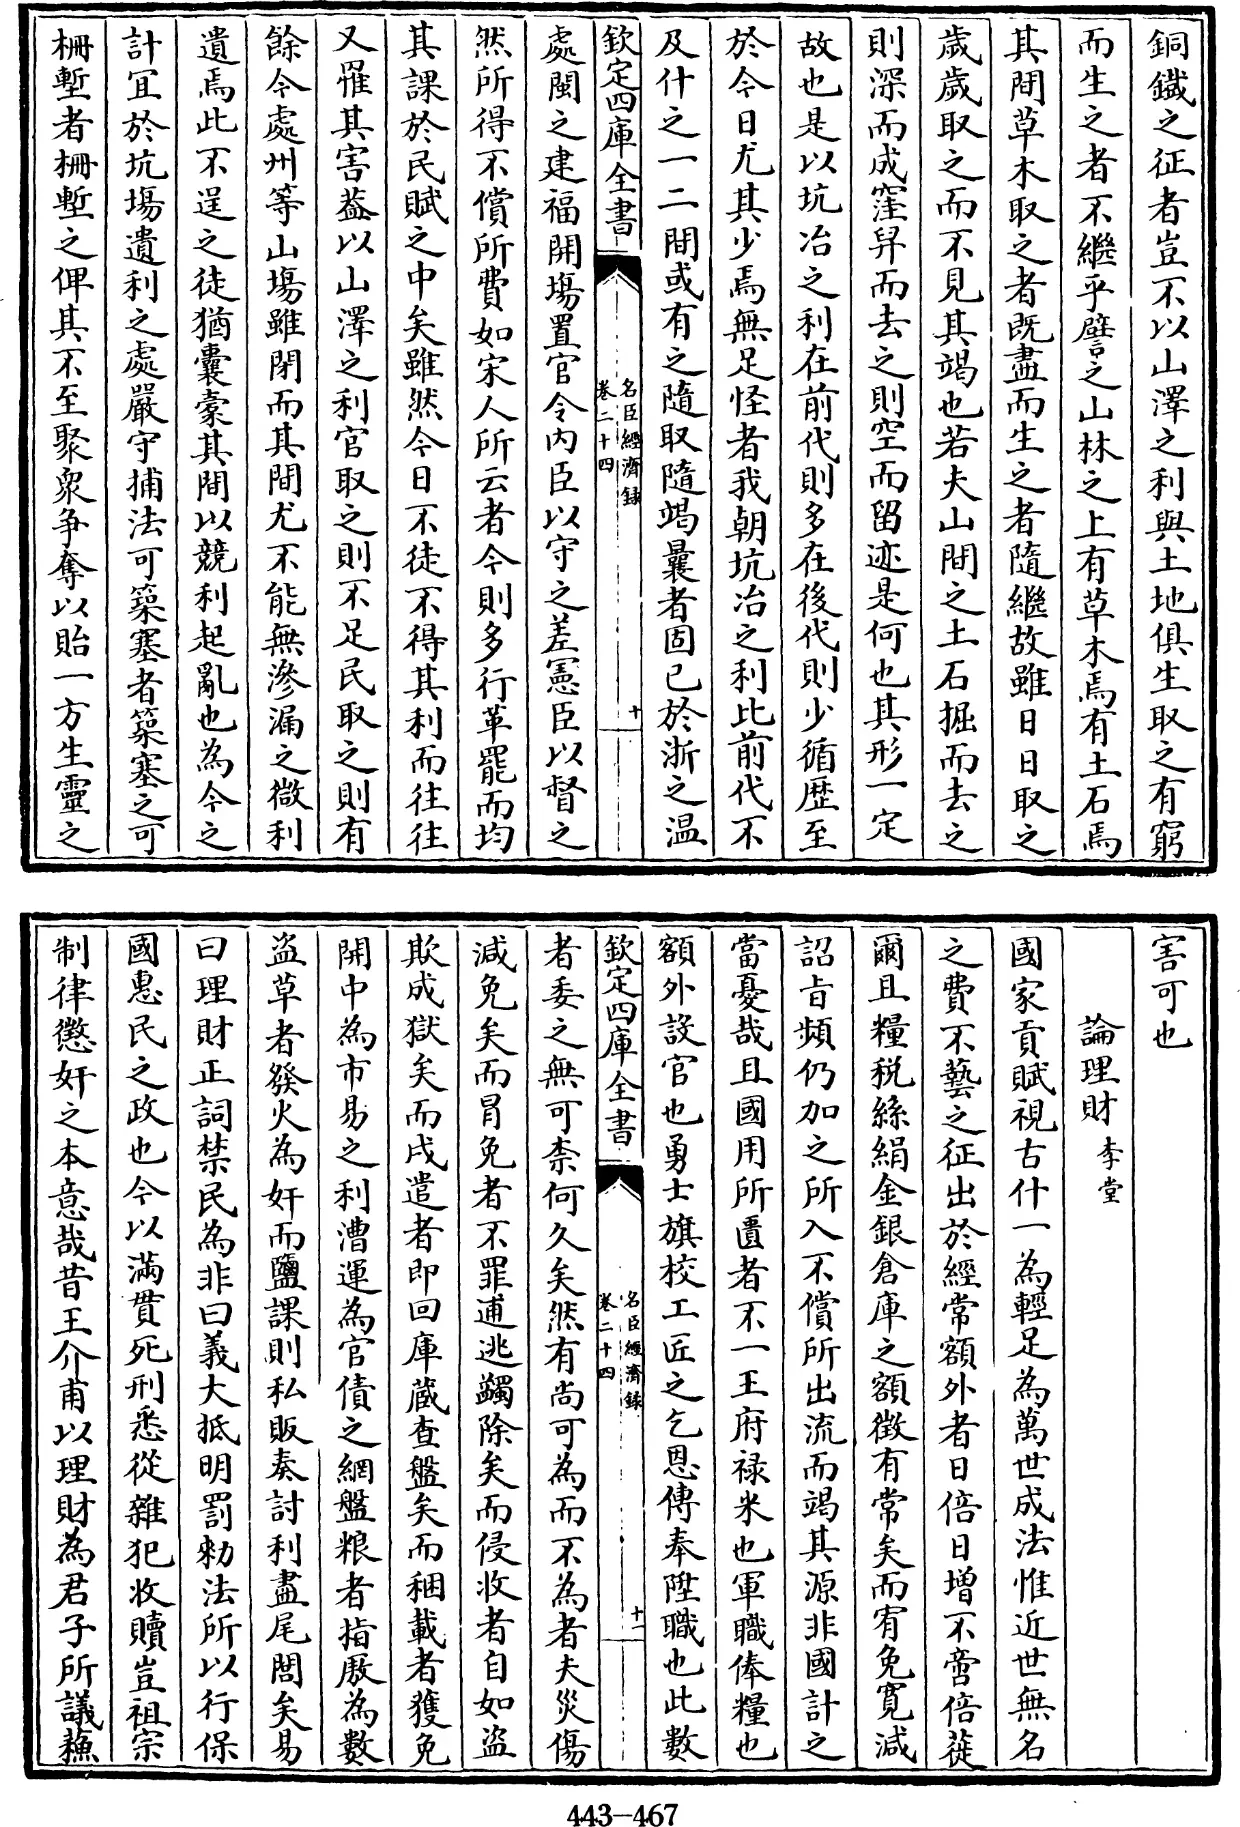 銅鐵之征者豈不以山澤之利與土地俱生取之有窮
而生之者不繼乎譬之山林之上有草木焉有土石焉
其間草木取之者既盡而生之者隨繼故雖日日取之
歲歲取之而不見其竭也若夫山間之土石掘而去之
則深而成窪舁而去之則空而留迹是何也其形一定
故也是以坑冶之利在前代則多在後代則少循歴至
於今日尤其少焉無足怪者我朝坑冶之利比前代不
及什之一二間或有之隨取隨竭曩者固已於浙之温
欽定四庫全書
名臣經濟録
卷二十四
十
處閩之建福開塲置官令内臣以守之差憲臣以督之
然所得不償所費如宋人所云者今則多行革罷而均
其課於民賦之中矣雖然今日不徒不得其利而往往
又罹其害葢以山澤之利官取之則不足民取之則有
餘今處州等山塲雖閉而其間尤不能無滲漏之微利
遺焉此不逞之徒猶囊橐其間以競利起亂也為今之
計宜於坑塲遺利之處嚴守捕法可築塞者築塞之可
柵塹者柵塹之俾其不至聚衆争奪以貽一方生靈之
害可也
論理財 李堂
國家貢賦視古什一為輕足為萬世成法惟近世無名
之費不藝之征出於經常額外者日倍日增不啻倍蓰
爾且糧税絲絹金銀倉庫之額徵有常矣而宥免寛減
詔旨頻仍加之所入不償所出流而竭其源非國計之
當憂哉且國用所匱者不一王府禄米也軍職俸糧也
額外設官也勇士旗校工匠之乞恩傳奉陞職也此數
欽定四庫全書
名臣經濟録
卷二十四
十一
者委之無可柰何久矣然有尚可為而不為者夫災傷
減免矣而冐免者不罪逋逃蠲除矣而侵收者自如盗
欺成獄矣而戍遣者即回庫藏查盤矣而稛載者獲免
開中為市易之利漕運為官債之網盤粮者指厫為數
盗草者發火為奸而鹽課則私販奏討利盡尾閭矣易
曰理財正詞禁民為非曰義大抵明罰勑法所以行保
國惠民之政也今以滿貫死刑悉從雜犯收贖豈祖宗
制律懲奸之本意哉昔王介甫以理財為君子所議蘓
443-467